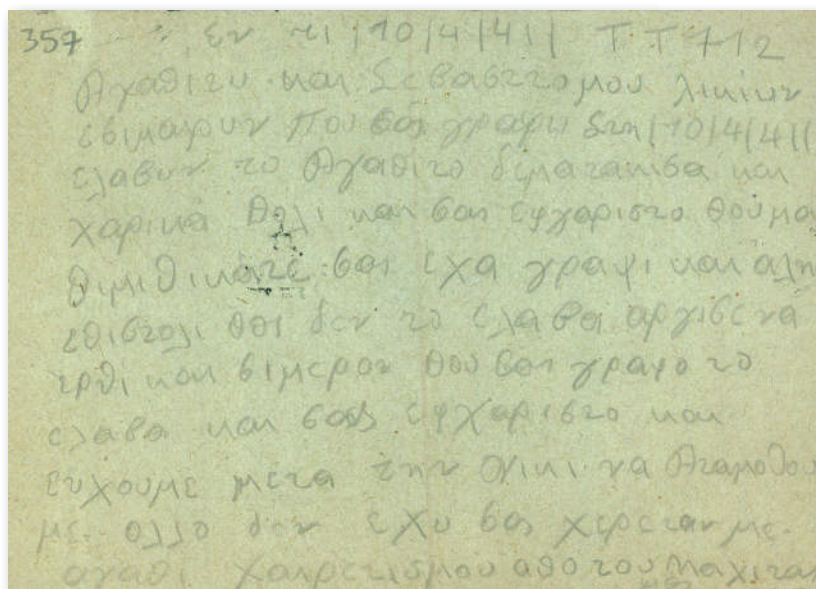 357 εν τι |10|4|41| Τ Τ 712
Αγαθιτυ και Σεβαστομου λικιων
σβιμαρυν που σας γραφι στη |10|4|41|
ελαβυν το Αγαθιτο δεματακισα και
χαρικα πολι και σας εφχαριστο που μα
θιμιθικατε σας εχα γραψι και αλη
επιστολι οπι δεν το ελαβα αργισε να
ερθι και σιμερον που σας γραφο το
ελαβα και σας εφχαριστο και
ευχουμε μετα την νικι να Ανταμοθου
με. αλλο δεν εχυ σας χερεταν με.
αγαθι χαιρετισμου απο του μαχιταν